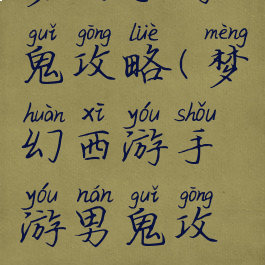 guǐ gōng lüè mèng
鬼攻略(梦
huàn xī yóu shǒu
幻西游手
yóu nán guǐ gōng
游男鬼攻